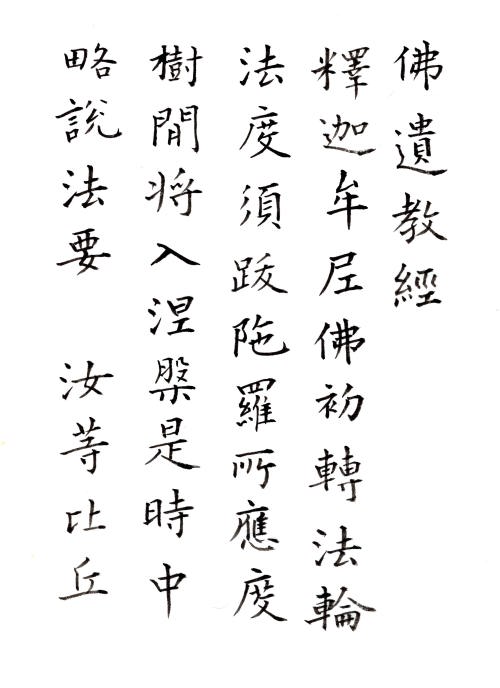 佛遺教經
釋迦牟尼佛初轉法輪
法度須跋陁羅所應度
樹間将入涅槃是時中
略說法要 汝等比丘